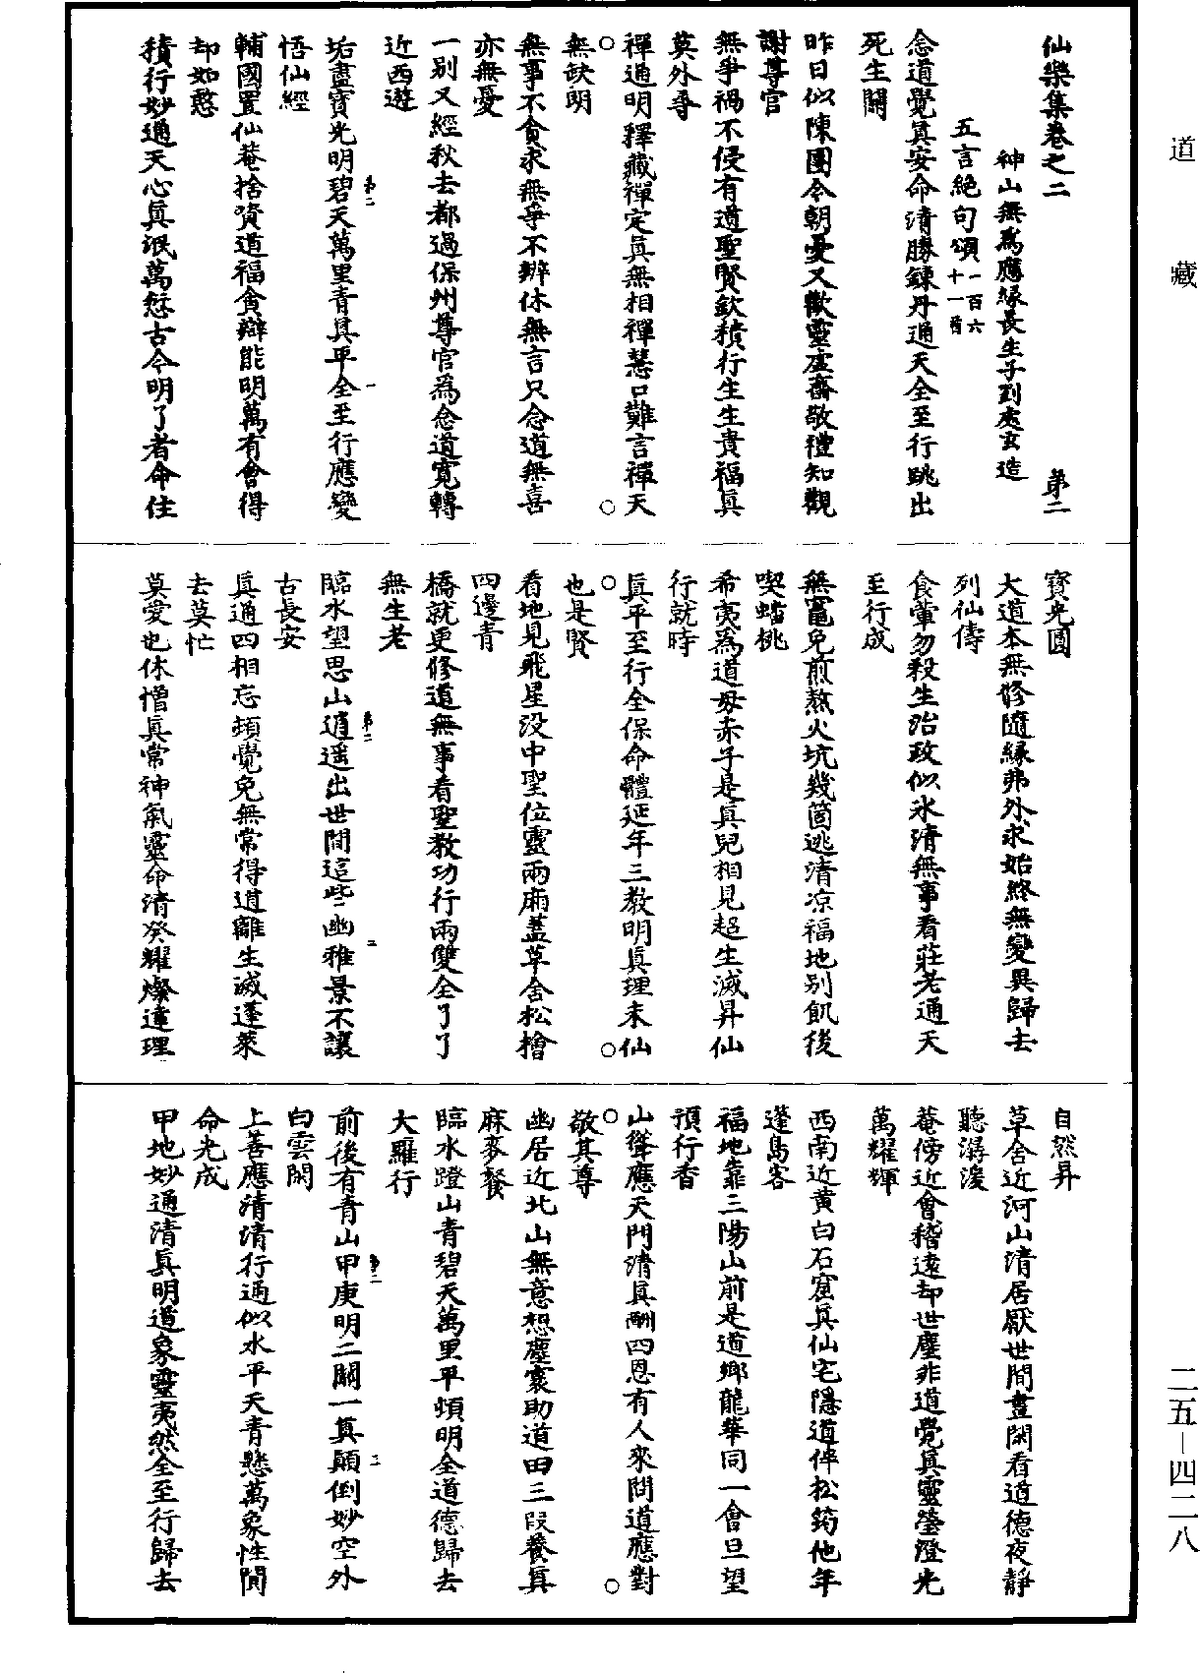 道藏
仙樂集卷之二
第二
神山無爲應緣長生子到處玄造
五言絶句頌一百六十一首
念道覺眞安命清勝鍊丹通天全至行跳出
死生關
昨日似陳團今朝憂又歡靈虛齋敬禮知觀
謝尊官
無爭禍不侵有道聖賢欽積行生生貴福眞
莫外尋
禪通明釋藏禪定眞無相禪慧口難言禪天
無缺朗
無事不貪求無爭不辨休無言只念道無喜
亦無憂
一別又經秋去都過保州尊官爲念道寬轉
近西遊
垢盡寶光明碧天萬里青眞平全至行應變
悟仙經
輔國置仙菴捨資道福貪辯能明萬有會得
却如憨
積行妙通天心眞泯萬愆古今明了者命住
寶光圓
大道本無修隨緣弗外求始終無變異歸去
列仙儔
食葷勿殺生治政似氷清無事看莊老通天
至行成
無冤免煎熬火坑幾箇逃清凉福地别飢後
喫蟠桃
希夷爲道母赤子是眞兒相見超生滅昇仙
行就時
眞平至行全保命體延年三教明眞理未仙
也是賢
看地見飛星没中聖位靈兩廂蓋草舍松檜
四邊青
橋就更修道無事看聖教功行兩雙全了了
無生老
臨水望思山逍遥出世間這些幽雅景不讓
古長安
眞通四相忘頻覺免無常得道離生滅蓬萊
去莫忙
莫愛也休憎眞常神氣靈命清癸耀燦達理
自然昇
草舍近河山清居厭世間晝閑看道德夜靜
聽潺湲
菴傍近會稽遠却世塵非道覺眞靈瑩澄光
萬耀輝
西南近黄白石窟眞仙宅隱道伴松筠他年
蓬島客
福地靠三陽山前是道鄉龍華同一會旦望
預行香
山聳應天門清眞酬四恩有人來問道應對
敬其尊
幽居近北山無意想塵寰助道田三段養眞
麻麥餐
臨水蹬山青碧天萬里平頃明全道德歸去
大羅行
前後有青山甲庚明二關一眞顛倒妙空外
白雲閑
上善應清清行通似水平天青懸萬象性閒
命光成
甲地妙通清眞明道象靈夷然全至行歸去
二五—四二八